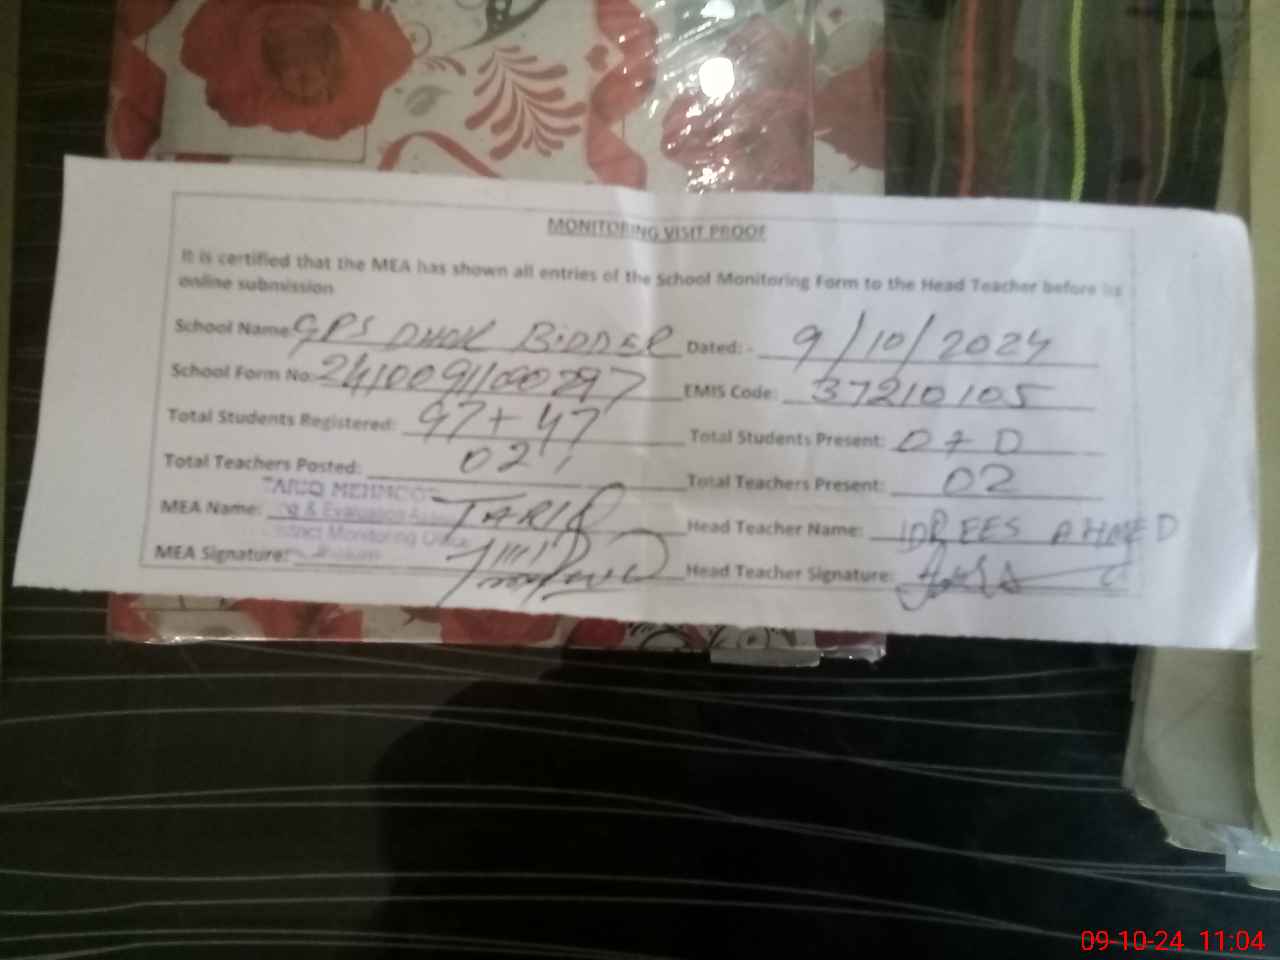 MONITORING VISIT PROOF
It is certified that the MEA has shown all entries of the School Monitoring Form to the Head Teacher before its
online submission
School Name: GPS DHOK BIDDER Dated: - 9/10/2024
School Form No: 2410091100297 EMIS Code: 37210105
Total Students Registered: 97+47 Total Students Present: 0+0
Total Teachers Posted: 02 Total Teachers Present: 02
TARIQ MEHMOOD
MEA Name: TARIQ Head Teacher Name: IDREES AHMED
ng & Evaluation
District Monitoring
MEA Signature: Head Teacher Signature:
09-10-24 11:04